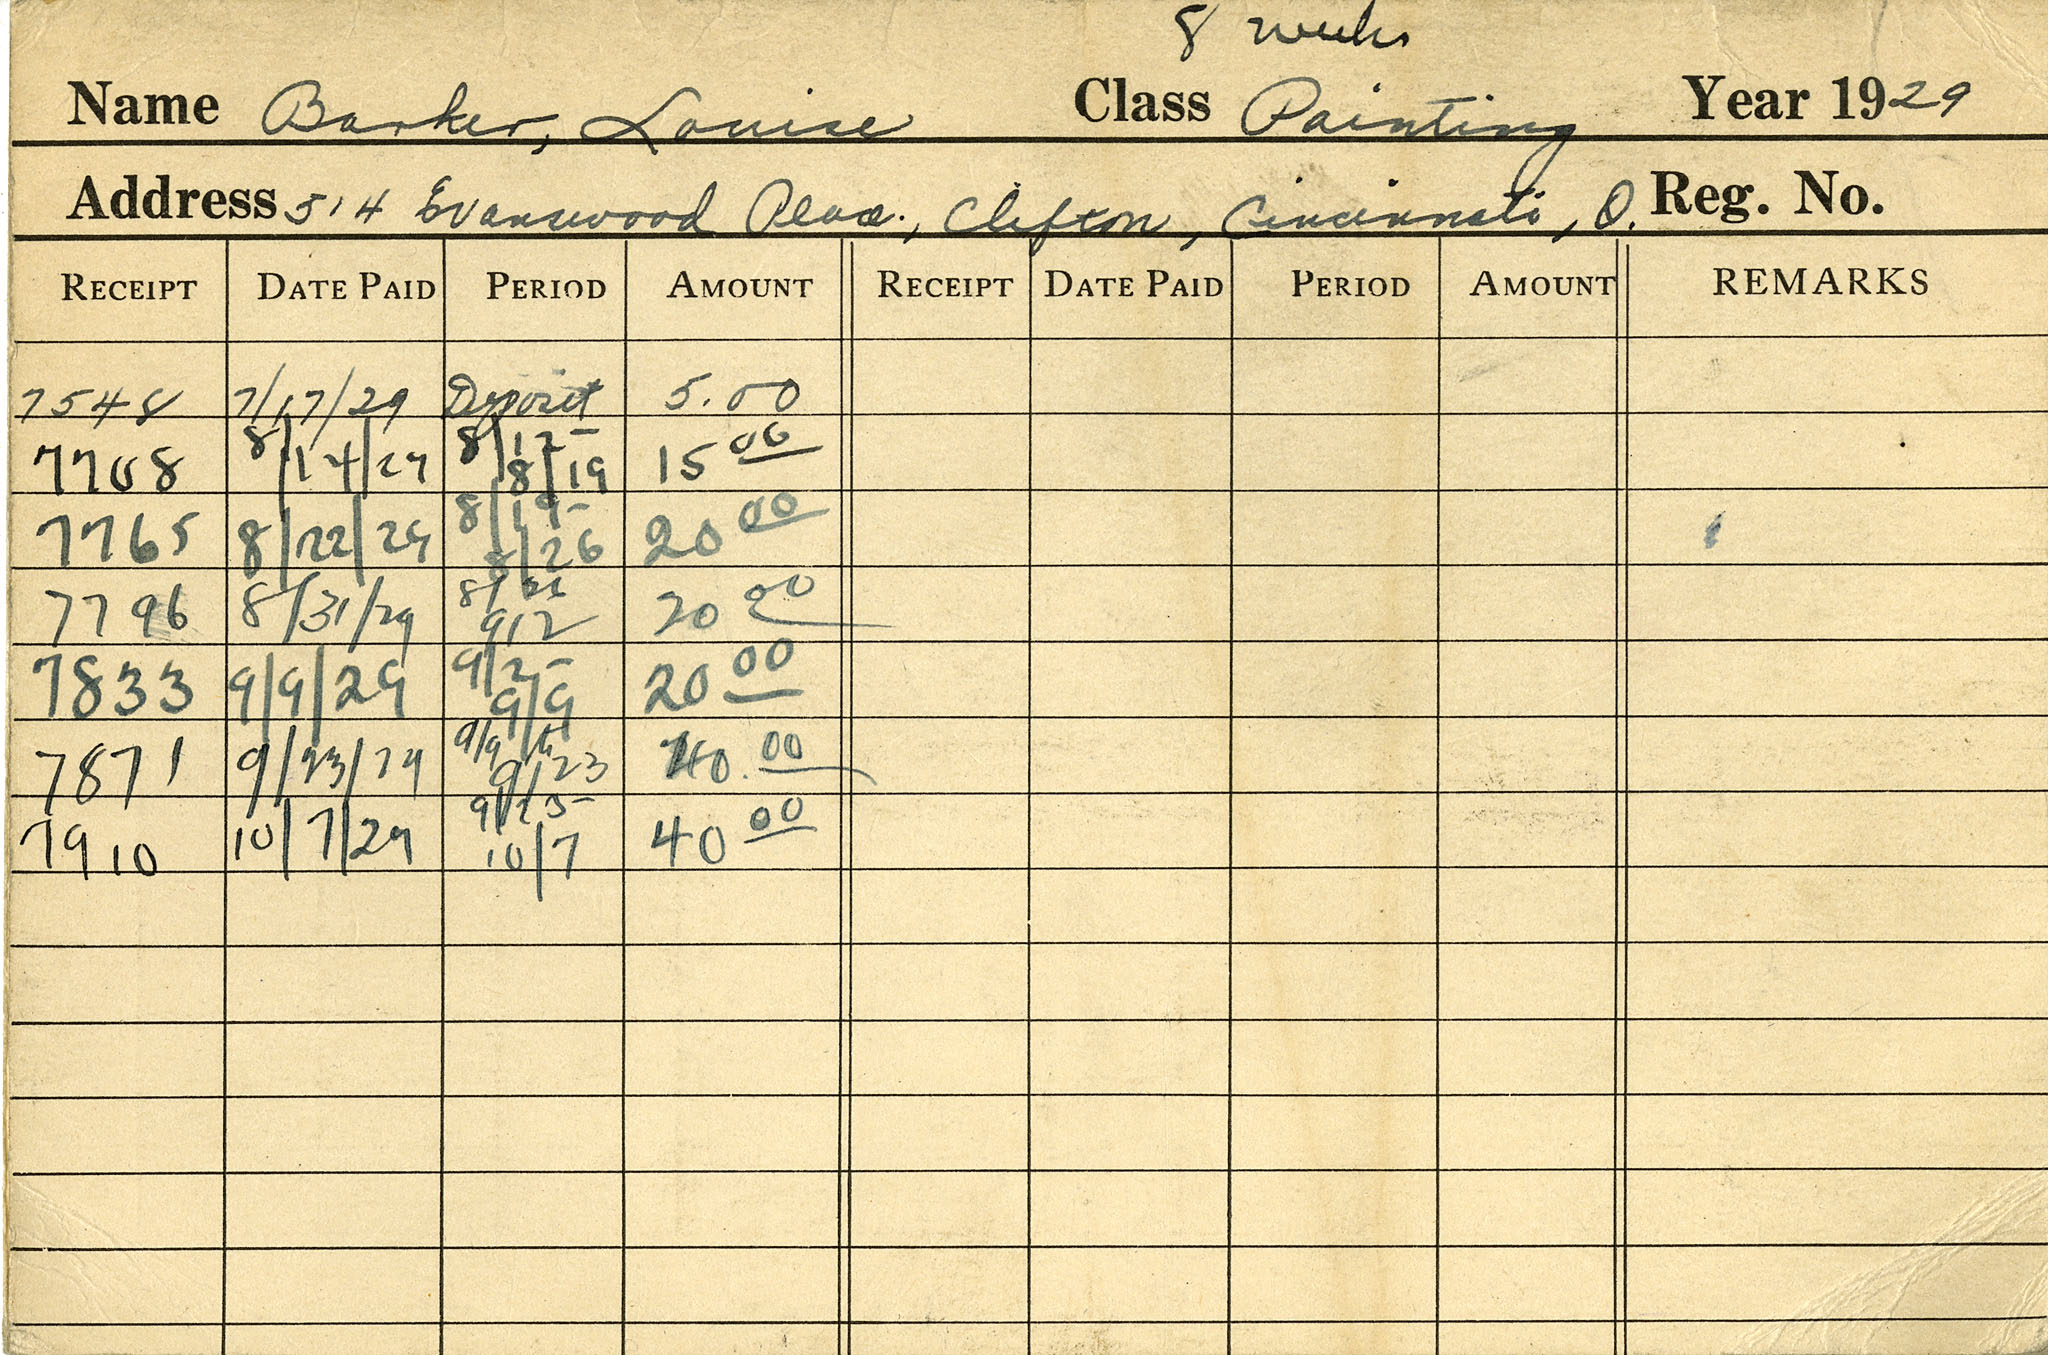 8 weeks
Name Barker, Louise Class Painting Year 1929
Address 514 Evanswood Place., Clifton, Cincinnati, O. Reg. No.
RECEIPT DATE PAID PERIOD AMOUNT RECEIPT DATE PAID PERIOD AMOUNT REMARKS
7548 7/17/29 Deposit 5.00
7708 8/14/29 8/12- 8/19 15 00
7765 8/22/29 8/19- 8/26 20 00
7796 8/31/29 8/26 9/2 20 00
7833 9/9/29 9/2- 9/9 20 00
7871 9/23/29 9/9 to 9/23 40.00
7910 10/7/29 9/23- 10/7 40 00